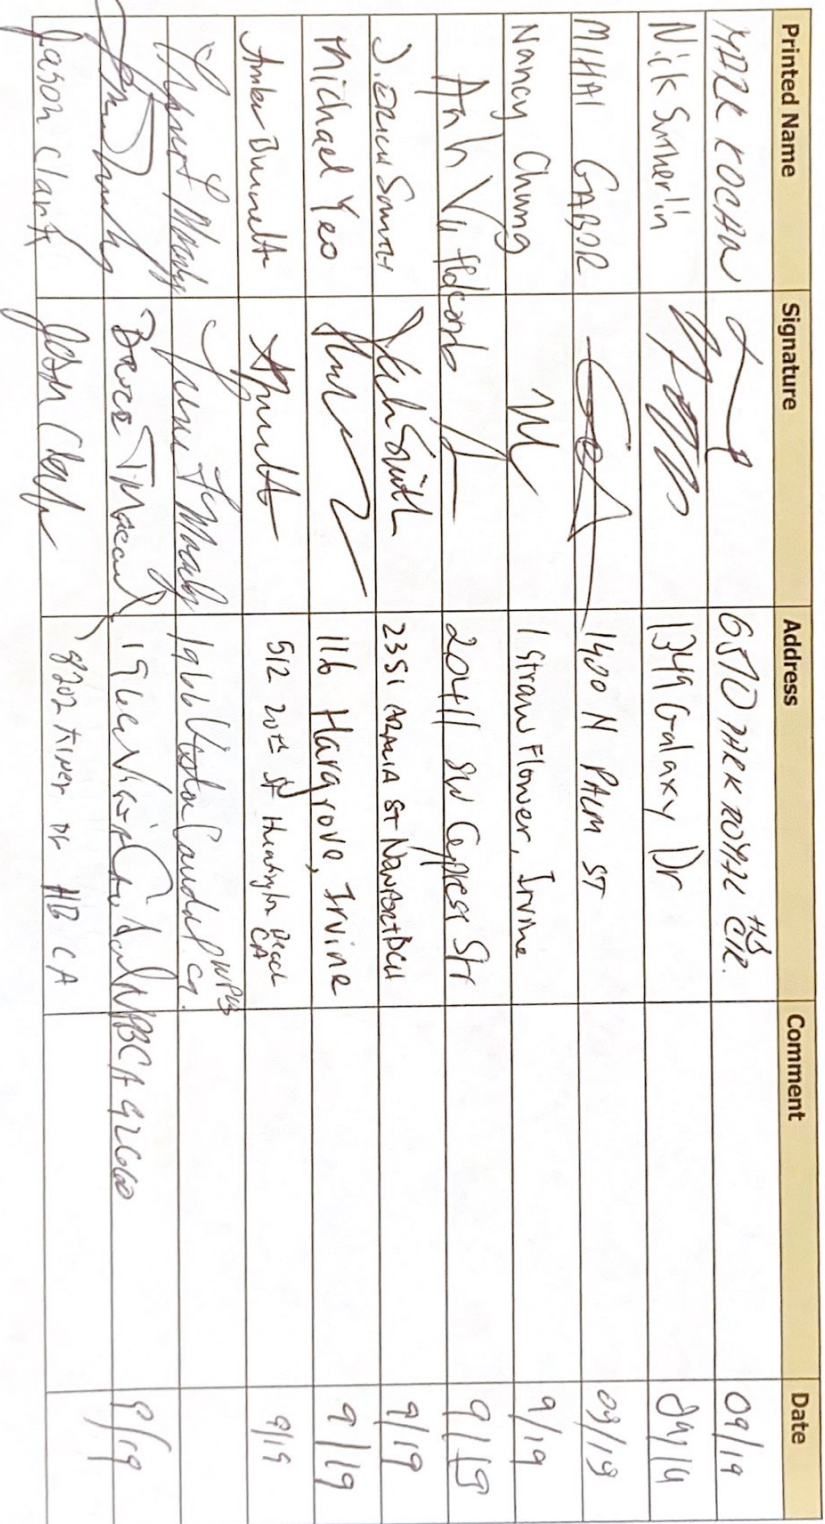 Printed Name Signature Address Comment Date
MARK KOCAN 6570 PARK ROYAL CIR. 09/19
Nik Sutherlin 1349 Galaxy Dr
MIHAI GABOR 1400 N PALM ST 09/19
Nancy Chung 1 Straw Flower, Irvine 9/19
Anh Vu Holcomb 20411 SW Cypress Str 9/19
J. ERICH SMITH Erich Smith 2351 AZALIA ST NEWPORT BCH 9/19
Michael Yeo 116 Hargrove, Irvine 9/19
Amber Burnett 512 20th St Huntington Beach CA 9/19
Moody Moody 1966 Vista Caudal
Bruce 1966 Vista Caudal NB CA 92660 9/19
Jason Clark Jason Clark HB CA